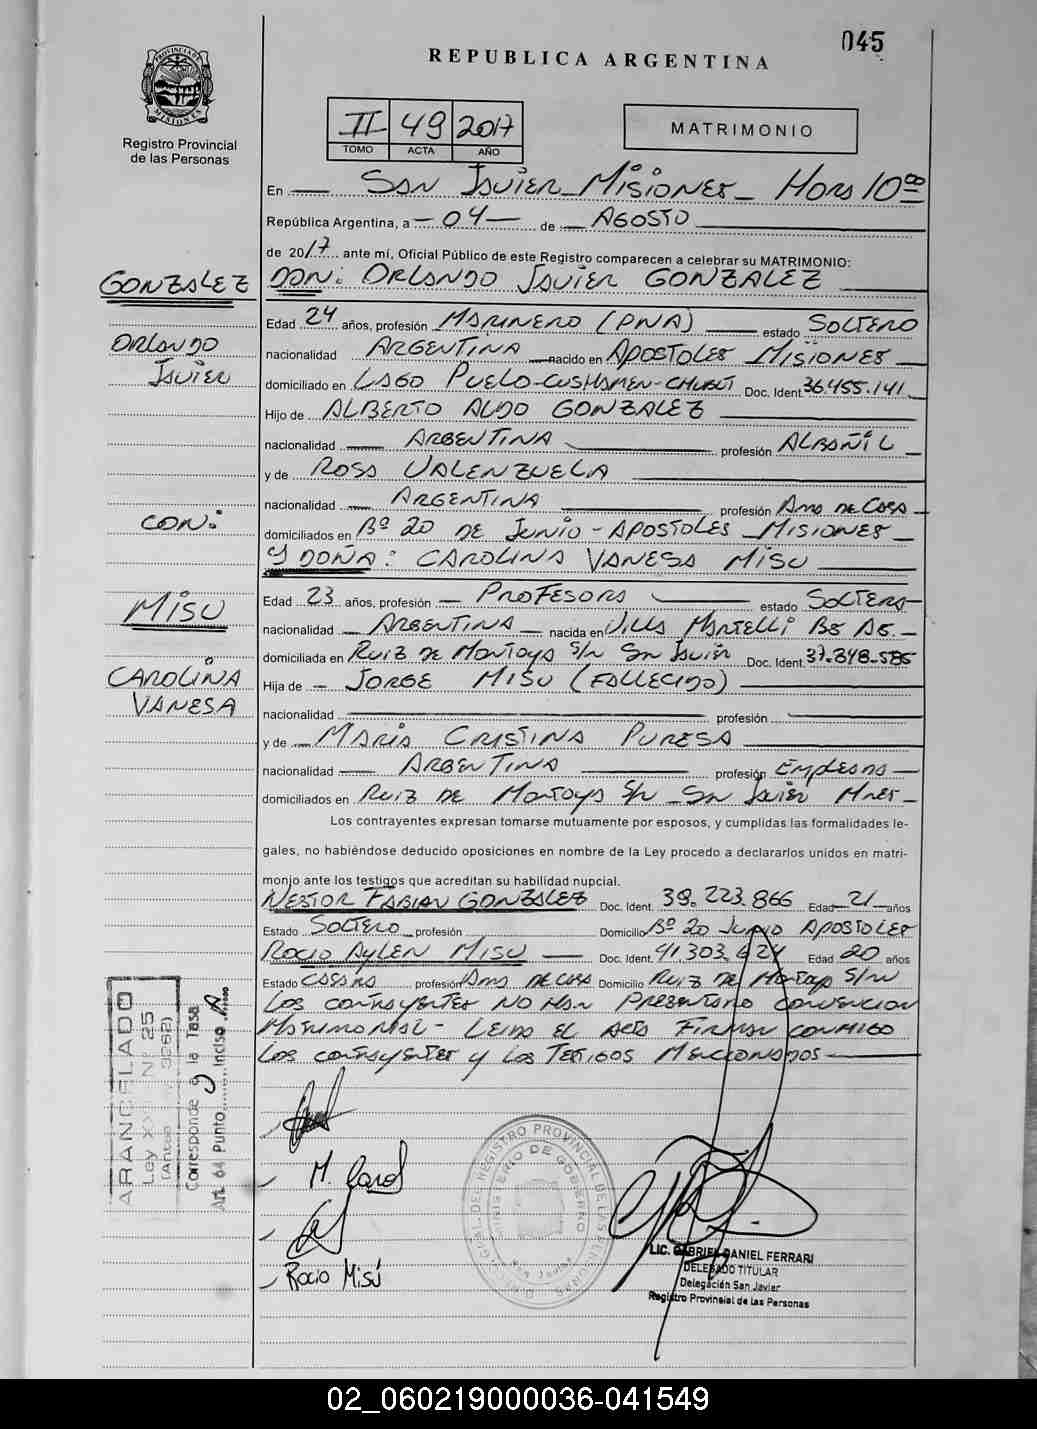 045
REPUBLICA ARGENTINA
PROVINCIA DE MISIONES
Registro Provincial
de las Personas
II 49 2017
TOMO ACTA AÑO
MATRIMONIO
En San Javier - Misiones - Hora 10:00
República Argentina, a - 04 - de - AGOSTO
de 2017 ante mí, Oficial Público de este Registro comparecen a celebrar su MATRIMONIO:
GONZALEZ
DON: ORLANDO JAVIER GONZALEZ
ORLANDO
JAVIER
Edad 24 años, profesión MARINERO (PNA) estado SOLTERO
nacionalidad ARGENTINA nacido en APOSTOLES MISIONES
domiciliado en LAGO PUELO-CUSHAMEN-CHUBUT Doc. Ident. 36.455.141
Hijo de ALBERTO ALDO GONZALEZ
nacionalidad ARGENTINA profesión ALBAÑIL
y de ROSA VALENZUELA
nacionalidad ARGENTINA profesión AMA DE CASA
CON:
domiciliados en Bº 20 DE JUNIO - APOSTOLES MISIONES
Y DOÑA: CAROLINA VANESA MISU
MISU
CAROLINA
VANESA
Edad 23 años, profesión - PROFESORA estado SOLTERA
nacionalidad ARGENTINA nacida en VILLA MARTELLI BS AS.
domiciliada en RUIZ DE MONTOYA S/N SAN JAVIER Doc. Ident. 37.848.585
Hija de - JORGE MISU (FALLECIDO)
nacionalidad profesión
y de MARIA CRISTINA PURESA
nacionalidad ARGENTINA profesión EMPLEADA
domiciliados en RUIZ DE MONTOYA S/N - SAN JAVIER Mnes -
Los contrayentes expresan tomarse mutuamente por esposos, y cumplidas las formalidades le-
gales, no habiéndose deducido oposiciones en nombre de la Ley procedo a declararlos unidos en matri-
monio ante los testigos que acreditan su habilidad nupcial.
NESTOR FABIAN GONZALEZ Doc. Ident. 39.223.866 Edad 21 años
Estado SOLTERO profesión Domicilio Bº 20 JUNIO APOSTOLES
ROCIO AYLEN MISU Doc. Ident. 41.303.624 Edad 20 años
Estado CASADA profesión AMA DE CASA Domicilio RUIZ DE MONTOYA S/N
LOS CONTRAYENTES NO HAN PRESENTADO CONVENCION
MATRIMONIAL - LEIDA EL ACTA FIRMAN CONMIGO
LOS CONTRAYENTES Y LOS TESTIGOS MENCIONADOS
ARANCELADO
Ley XVI Nº 25
(Antes 3262)
Corresponde a la Tasa
Art. 64 Punto Inciso
M. Carol
Rocio Misú
REGISTRO PROVINCIAL DE LAS PERSONAS
MINISTERIO DE GOBIERNO
San Javier
LIC. GABRIEL DANIEL FERRARI
DELEGADO TITULAR
Delegación San Javier
Registro Provincial de las Personas
02_060219000036-041549